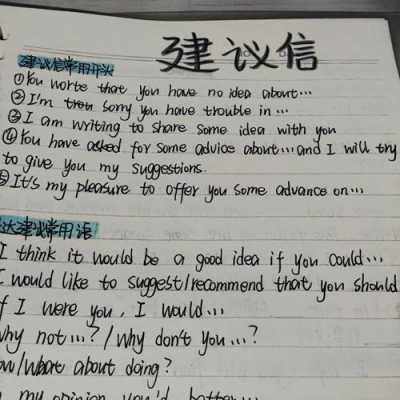 建议信
建议信常用开头
①You worte that you have no idea about…
②I'm sorry you have trouble in …
③I am writing to share some idea with you
④You have asked for some advice about…and I will try
to give you my suggestions.
⑤It's my pleasure to offer you some advance on…
达建议常用语
I think it would be a good idea if you could…
I would like to suggest/recommend that you should
If I were you, I would…
Why not…? / Why don't you…?
How/What about doing?
my opinion you'd better…